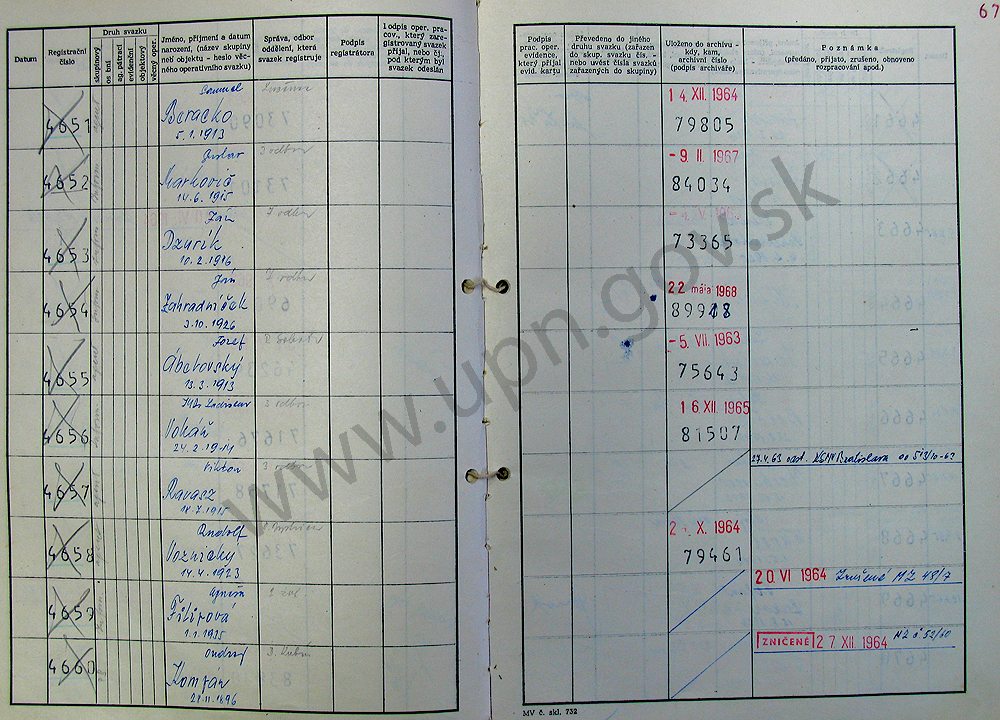 67
Datum
Registrační číslo
Druh svazku
skupinový
os bní
sg. pátrací
evidenční
objektový
věcný oper.
Jméno, příjmení a datum narození, (název skupiny neb objektu - heslo věcného operativního svazku)
Správa, odbor oddělení, která svazek registruje
Podpis registrátora
Podpis oper. pracov., který zaregistrovaný svazek přijal, nebo čj., pod kterým byl svazek odeslán
Podpis prac. oper. evidence, který přijal evid. kartu
Převedeno do jiného druhu svazku (zařazen do skup. svazku čís. - nebo uvést čísla svazků zařazených do skupiny)
Uloženo do archivu - kdy, kam, archivní číslo (podpis archiváře)
Poznámka
(předáno, přijato, zrušeno, obnoveno rozpracování apod.)
4651
Samuel
Beracko
5.1.1913
14. XII. 1964
79805
4652
Gustav
Markovič
14.6.1915
3 odbor
- 9. II. 1967
84034
4653
Ján
Dzurík
10.2.1916
7 odbor
73365
4654
Ján
Zahradníček
3.10.1926
22 mája 1968
89948
4655
Jozef
Ábelovský
13.3.1913
- 5. VII. 1963
75643
4656
Ladislav
Vokáň
24.2.1914
3 odbor
16 XII. 1965
81507
4657
Viktor
Ravasz
18.7.1915
3 odbor
27.4.63 odst. KSMV Bratislava
4658
Rudolf
Voznický
14.4.1923
X. 1964
79461
4659
Filipová
1.1.1935
20. VI 1964 Zničené MZ 48/7
4660
Ondrej
28.11.1896
ZNIČENÉ 27 XII. 1964
MV č. skl. 732
www.upn.gov.sk